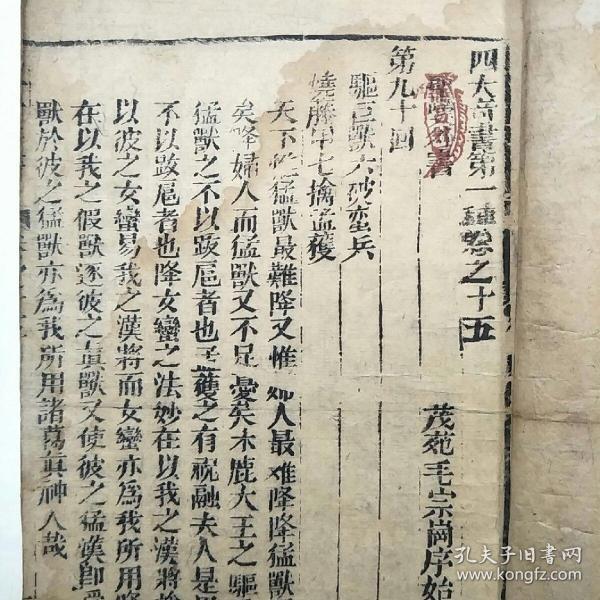 四大奇書第一種卷之十五
茂苑毛宗崗序始
第九十回
驅巨獸六破蛮兵
燒藤甲七擒孟獲
天下惟猛獸最難降又惟婦人最难降降猛獸
矣降婦人而猛獸又不足憂矣木鹿大王之驅
猛獸之不以跋扈者也孟獲之有祝融夫人是
不以跋扈者也降女蠻之法妙在以我之漢將
以彼之女蠻易我之漢將而女蠻亦爲我所用
在以我之假獸逐彼之真獸又使彼之猛漢卽
獸於彼之猛獸亦爲我所用諸葛真神人哉
孔夫子旧書网
www.kongfz.com